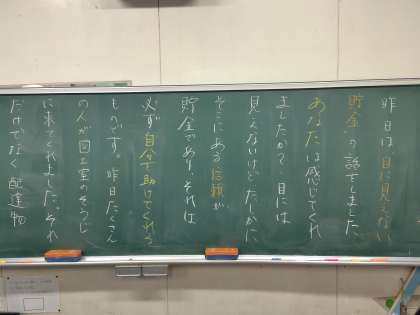 昨日は「目に見えない
貯金」の話をしました。
あなたは感じてくれ
ましたか？目には
見えないけど、たしかに
そこにある信頼が
貯金であり、それは
必ず自分を助けてくれる
ものです。昨日たくさん
の人が図工室のそうじ
に来てくれました。それ
だけでなく配達物